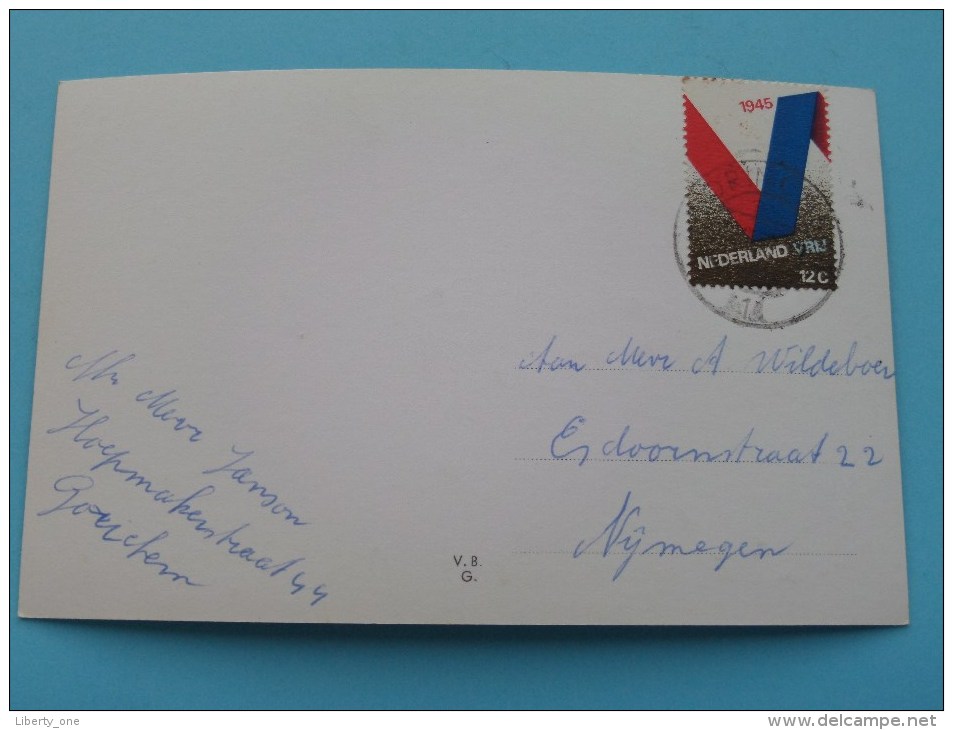 1945
NEDERLAND VRIJ
12 c
Aan Mevr A Wildeboer
Esdoornstraat 22
Nijmegen
Mevr Janson
Hoepmakerstraat 44
Gorichem
V. B.
G.
Liberty_one
www.delcampe.net